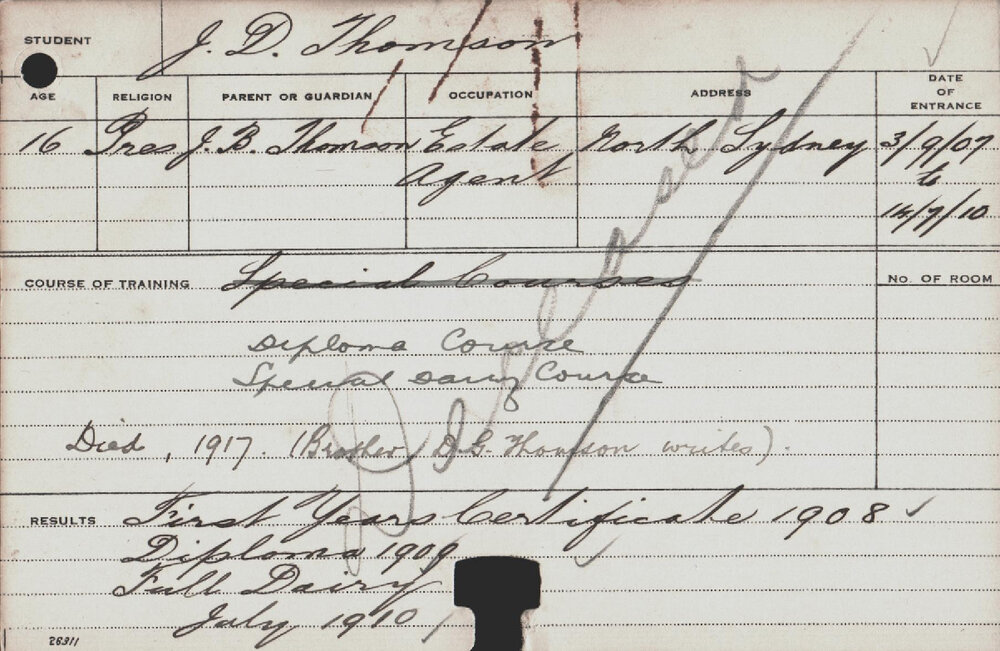 STUDENT J. D. Thomson
AGE RELIGION PARENT OR GUARDIAN OCCUPATION ADDRESS DATE OF ENTRANCE
16 Pres J. B. Thomson Estate Agent North Sydney 3/9/07
to
14/7/10
COURSE OF TRAINING Special Courses
No. OF ROOM
Diploma Course
Special Dairy Course
Deceased
Died, 1917. (Brother, D. G. Thomson writes).
RESULTS First Years Certificate 1908
Diploma 1909
Full Dairy
July 1910
26311